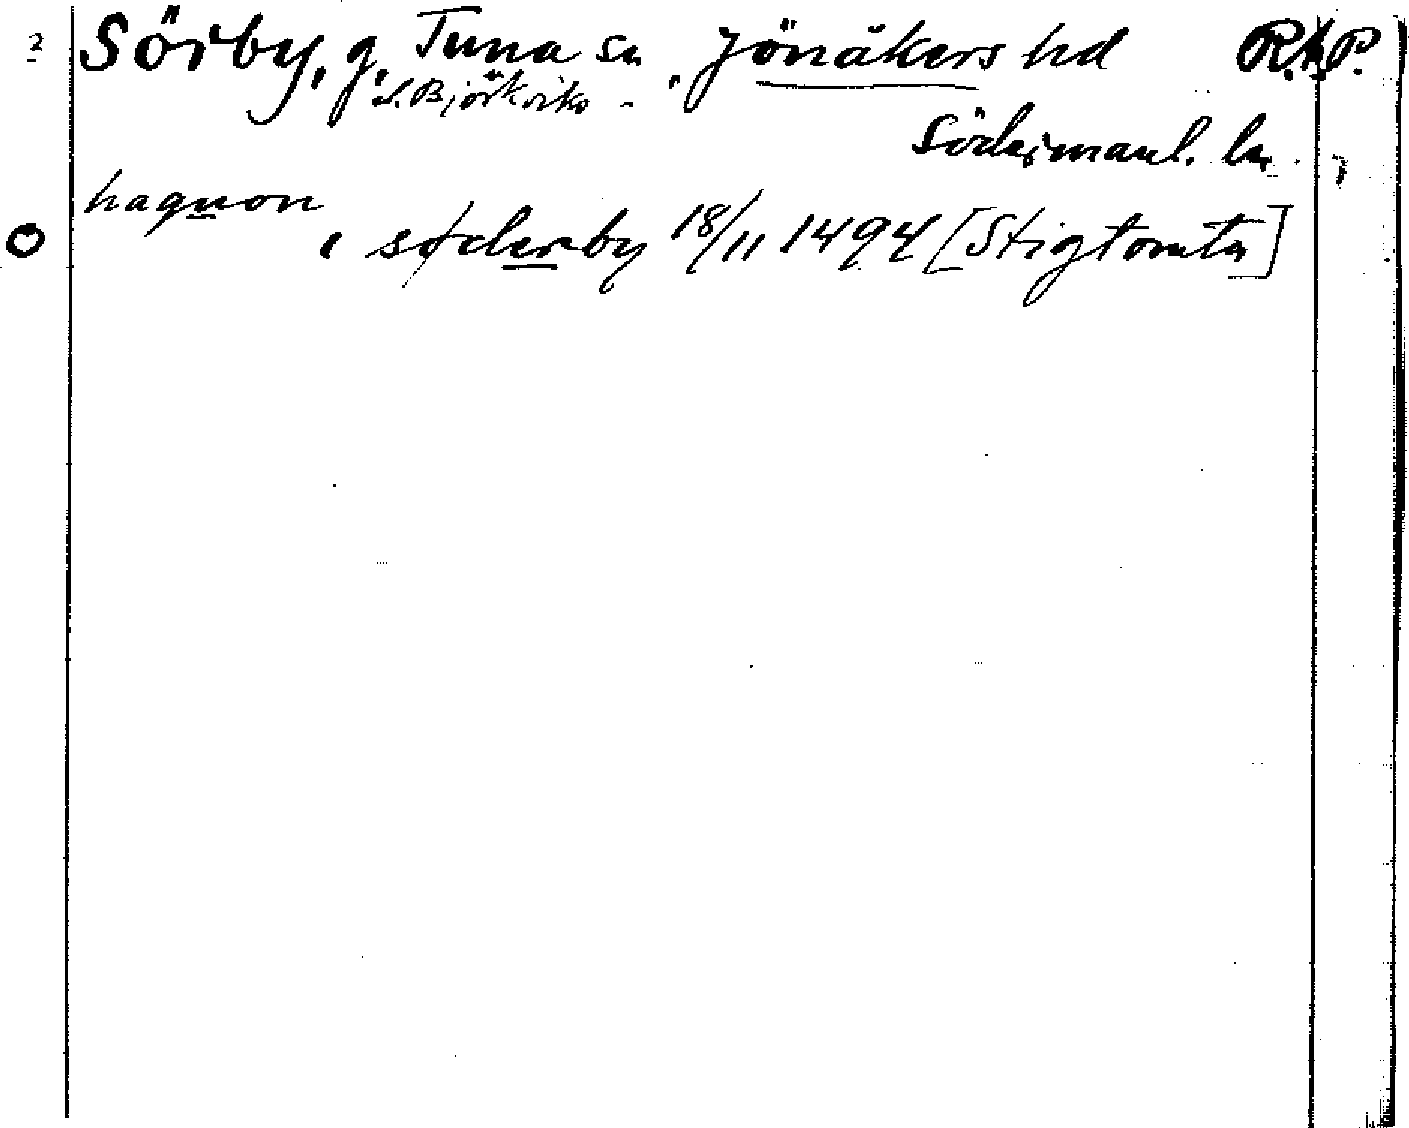 2 Sörby, g. Tuna sn, Jönåkers hd R.A.P.
s. Björkviks
Södermanl. ln
haquon
i søderby 18/11 1494 [Stigtomta]